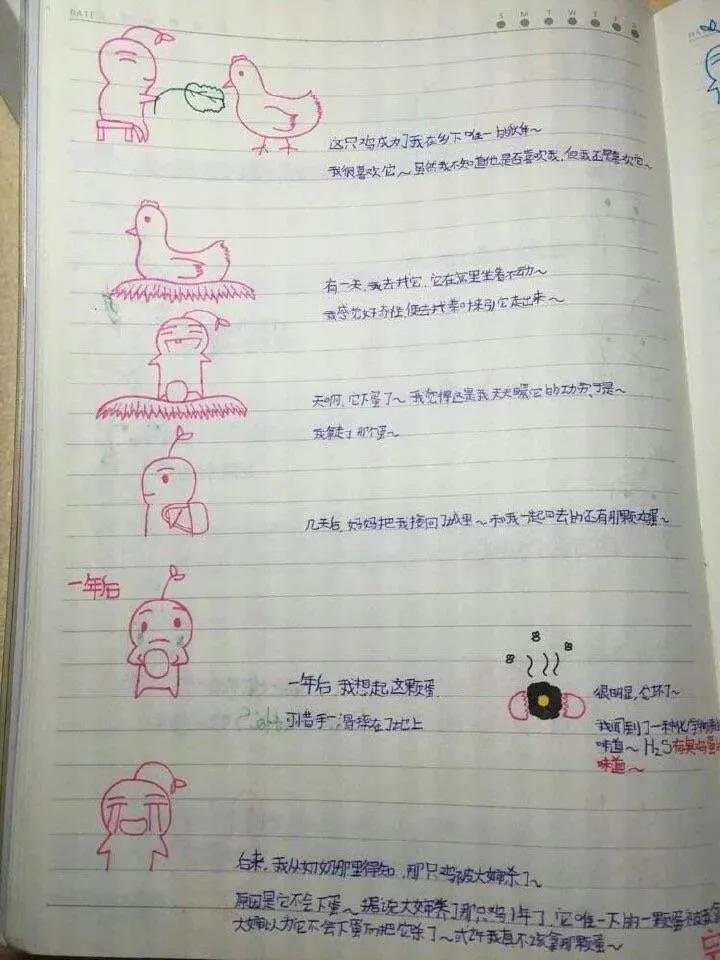 DATE
S M T W T F S
这只鸡成为了我在乡下唯一的伙伴~
我很喜欢它~虽然我不知道他是否喜欢我,但我还是喜欢它~
有一天,我去找它,它在窝里坐着不动~
我感觉好奇怪,便去找来引它走出来~
天啊,它下蛋了~我觉得这是我天天喂它的功劳,于是~
我拿走了那个蛋~
几天后,妈妈把我接回了城里~和我一起回去的还有那颗鸡蛋~
一年后
一年后,我想起这颗蛋
可惜手一滑摔在了地上
很明显,它坏了~
我闻到了一种化学物质
味道~H₂S有臭鸡蛋
味道~
后来,我从奶奶那里得知,那只鸡被大婶杀了~
原因是它不会下蛋~据说大婶养了那只鸡1年了,它唯一下的一颗蛋被我拿
大婶认为它不会下蛋而把它杀了~或许我真不该拿那颗蛋~